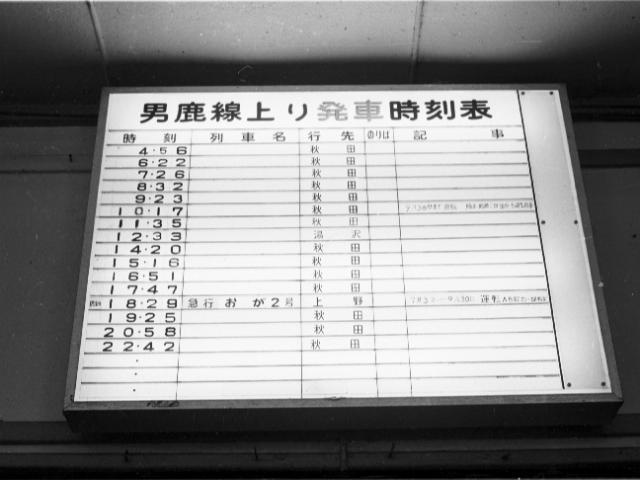 男鹿線上り発車時刻表
時刻 列車名 行先 のりば 記事
4・56 秋田
6・22 秋田
7・26 秋田
8・32 秋田
9・23 秋田
10・17 秋田
11・35 秋田
12・33 湯沢
14・20 秋田
15・16 秋田
16・51 秋田
17・47 秋田
18・29 急行 おが2号 上野 運転
19・25 秋田
20・58 秋田
22・42 秋田